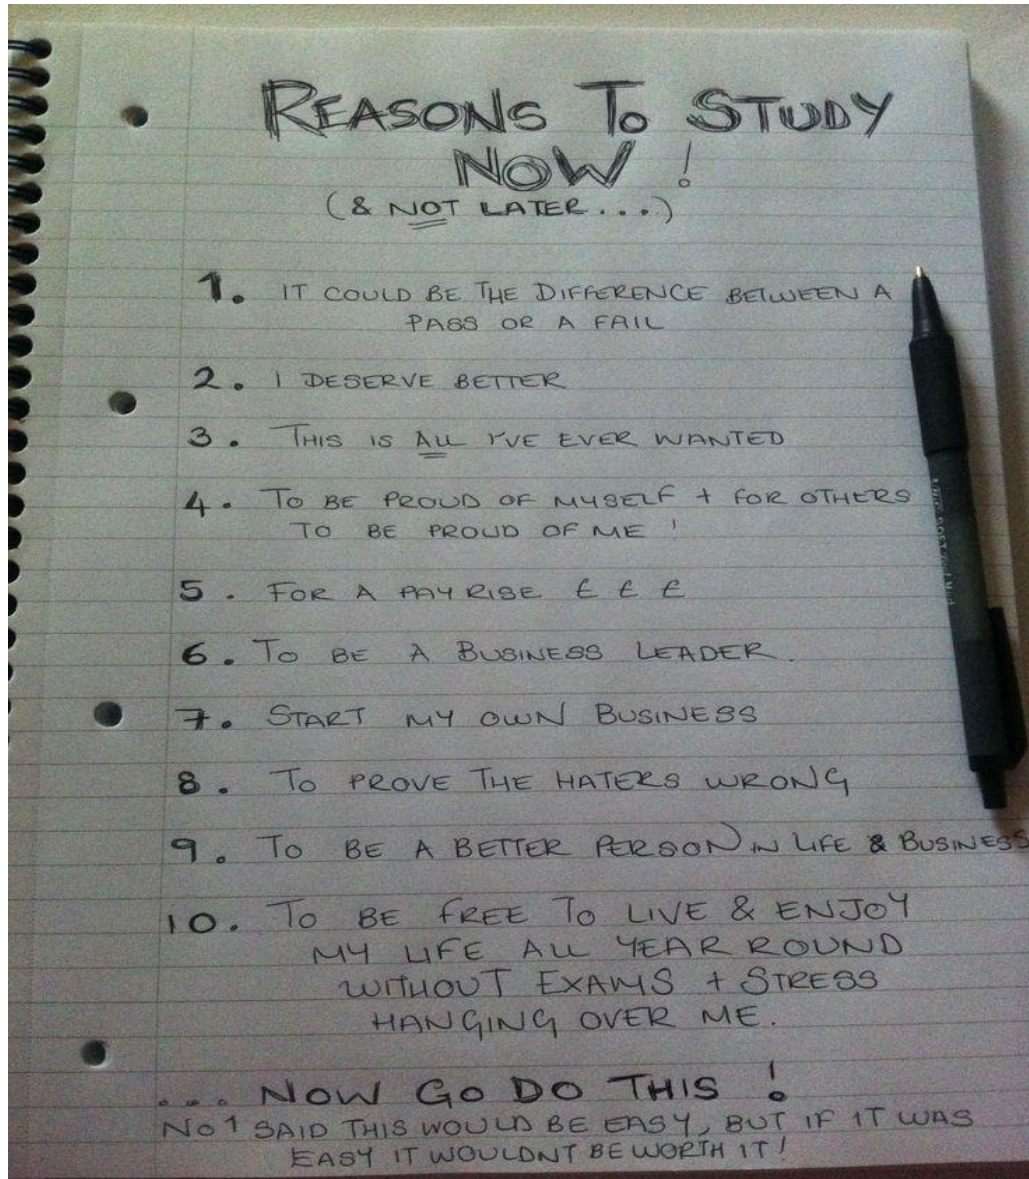 REASONS TO STUDY
NOW !
(& NOT LATER...)
1. IT COULD BE THE DIFFERENCE BETWEEN A
PASS OR A FAIL
2. I DESERVE BETTER
3. THIS IS ALL I'VE EVER WANTED
4. TO BE PROUD OF MYSELF + FOR OTHERS
TO BE PROUD OF ME !
5. FOR A PAY RISE £ £ £
6. TO BE A BUSINESS LEADER.
7. START MY OWN BUSINESS
8. TO PROVE THE HATERS WRONG
9. TO BE A BETTER PERSON IN LIFE & BUSINESS
10. TO BE FREE TO LIVE & ENJOY
MY LIFE ALL YEAR ROUND
WITHOUT EXAMS + STRESS
HANGING OVER ME.
... NOW GO DO THIS !
NO 1 SAID THIS WOULD BE EASY, BUT IF IT WAS
EASY IT WOULDNT BE WORTH IT !